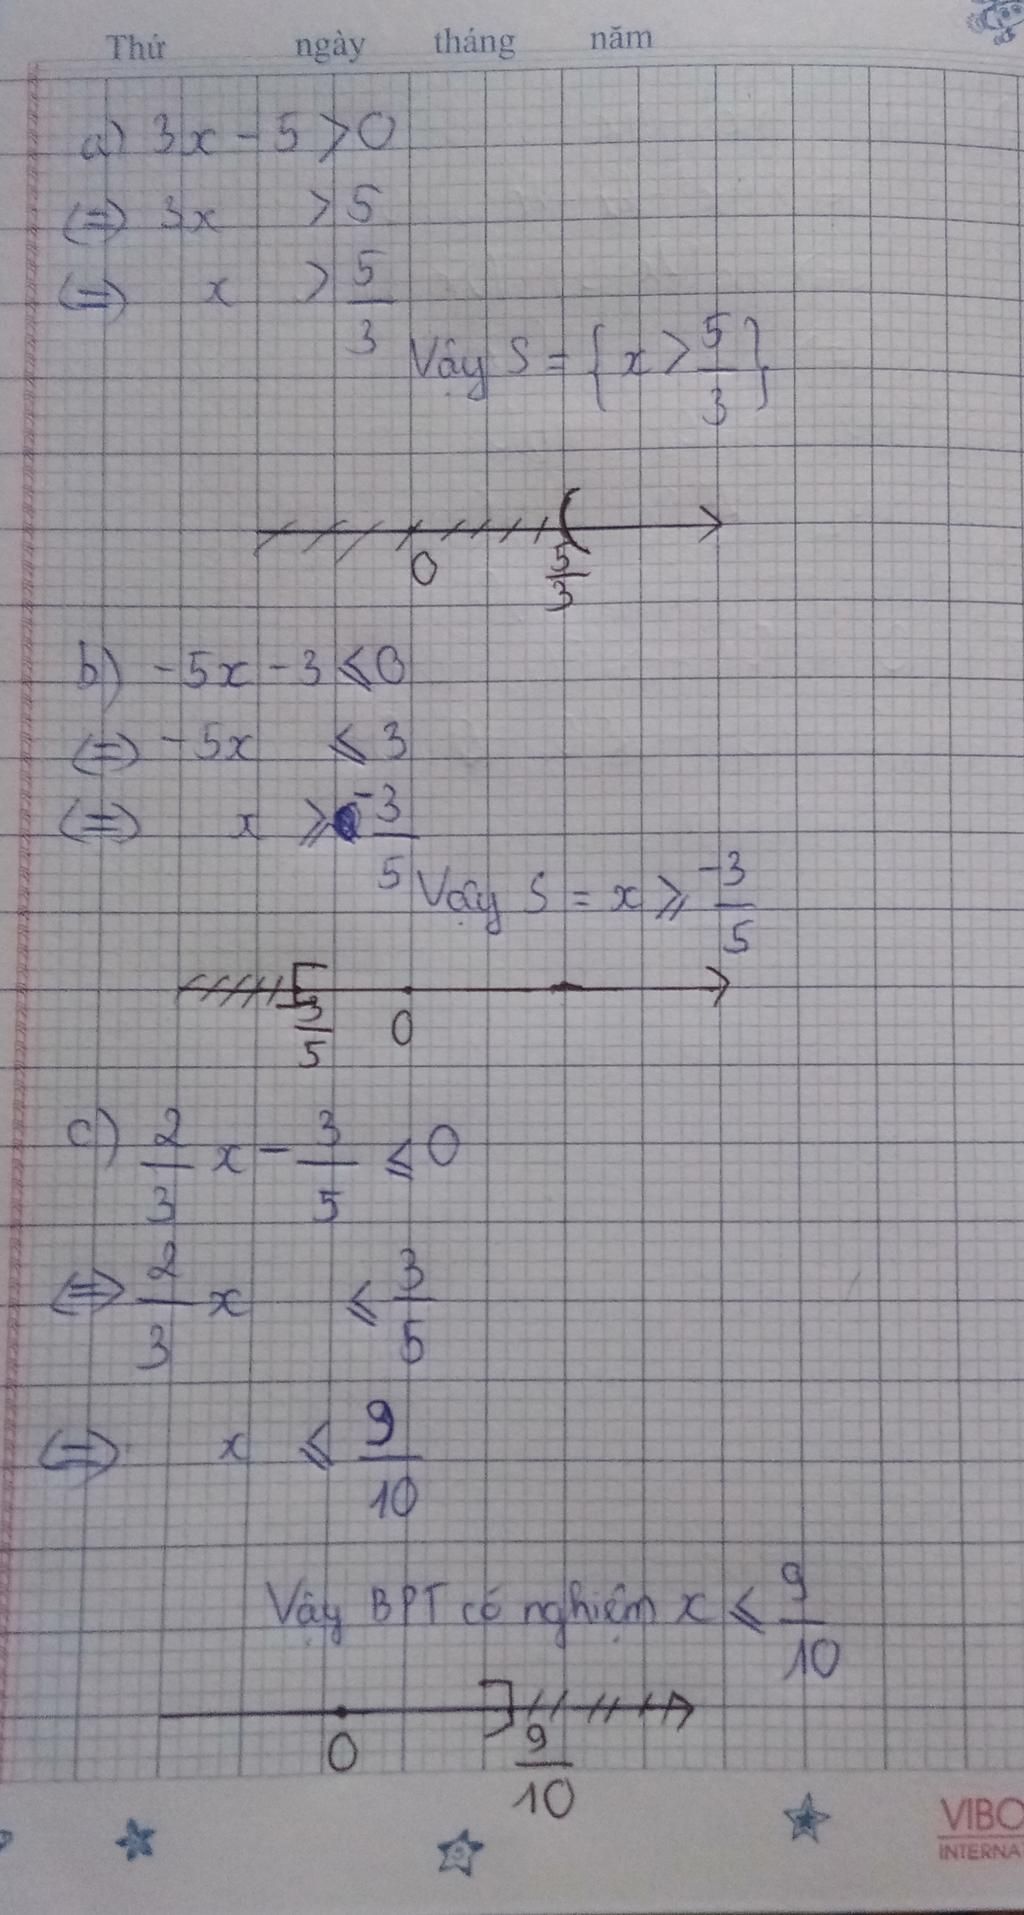 Thứ ngày tháng năm
a) 3x - 5 > 0
<=> 3x > 5
<=> x > 5/3
Vậy S = { x > 5/3 }
0 5/3
b) -5x - 3 ⩽ 0
<=> -5x ⩽ 3
<=> x ⩾ -3/5
Vậy S = x ⩾ -3/5
3/5 0
c) 2/3 x - 3/5 ⩽ 0
<=> 2/3 x ⩽ 3/5
<=> x ⩽ 9/10
Vậy BPT có nghiệm x ⩽ 9/10
0 9/10
VIBO
INTERNA